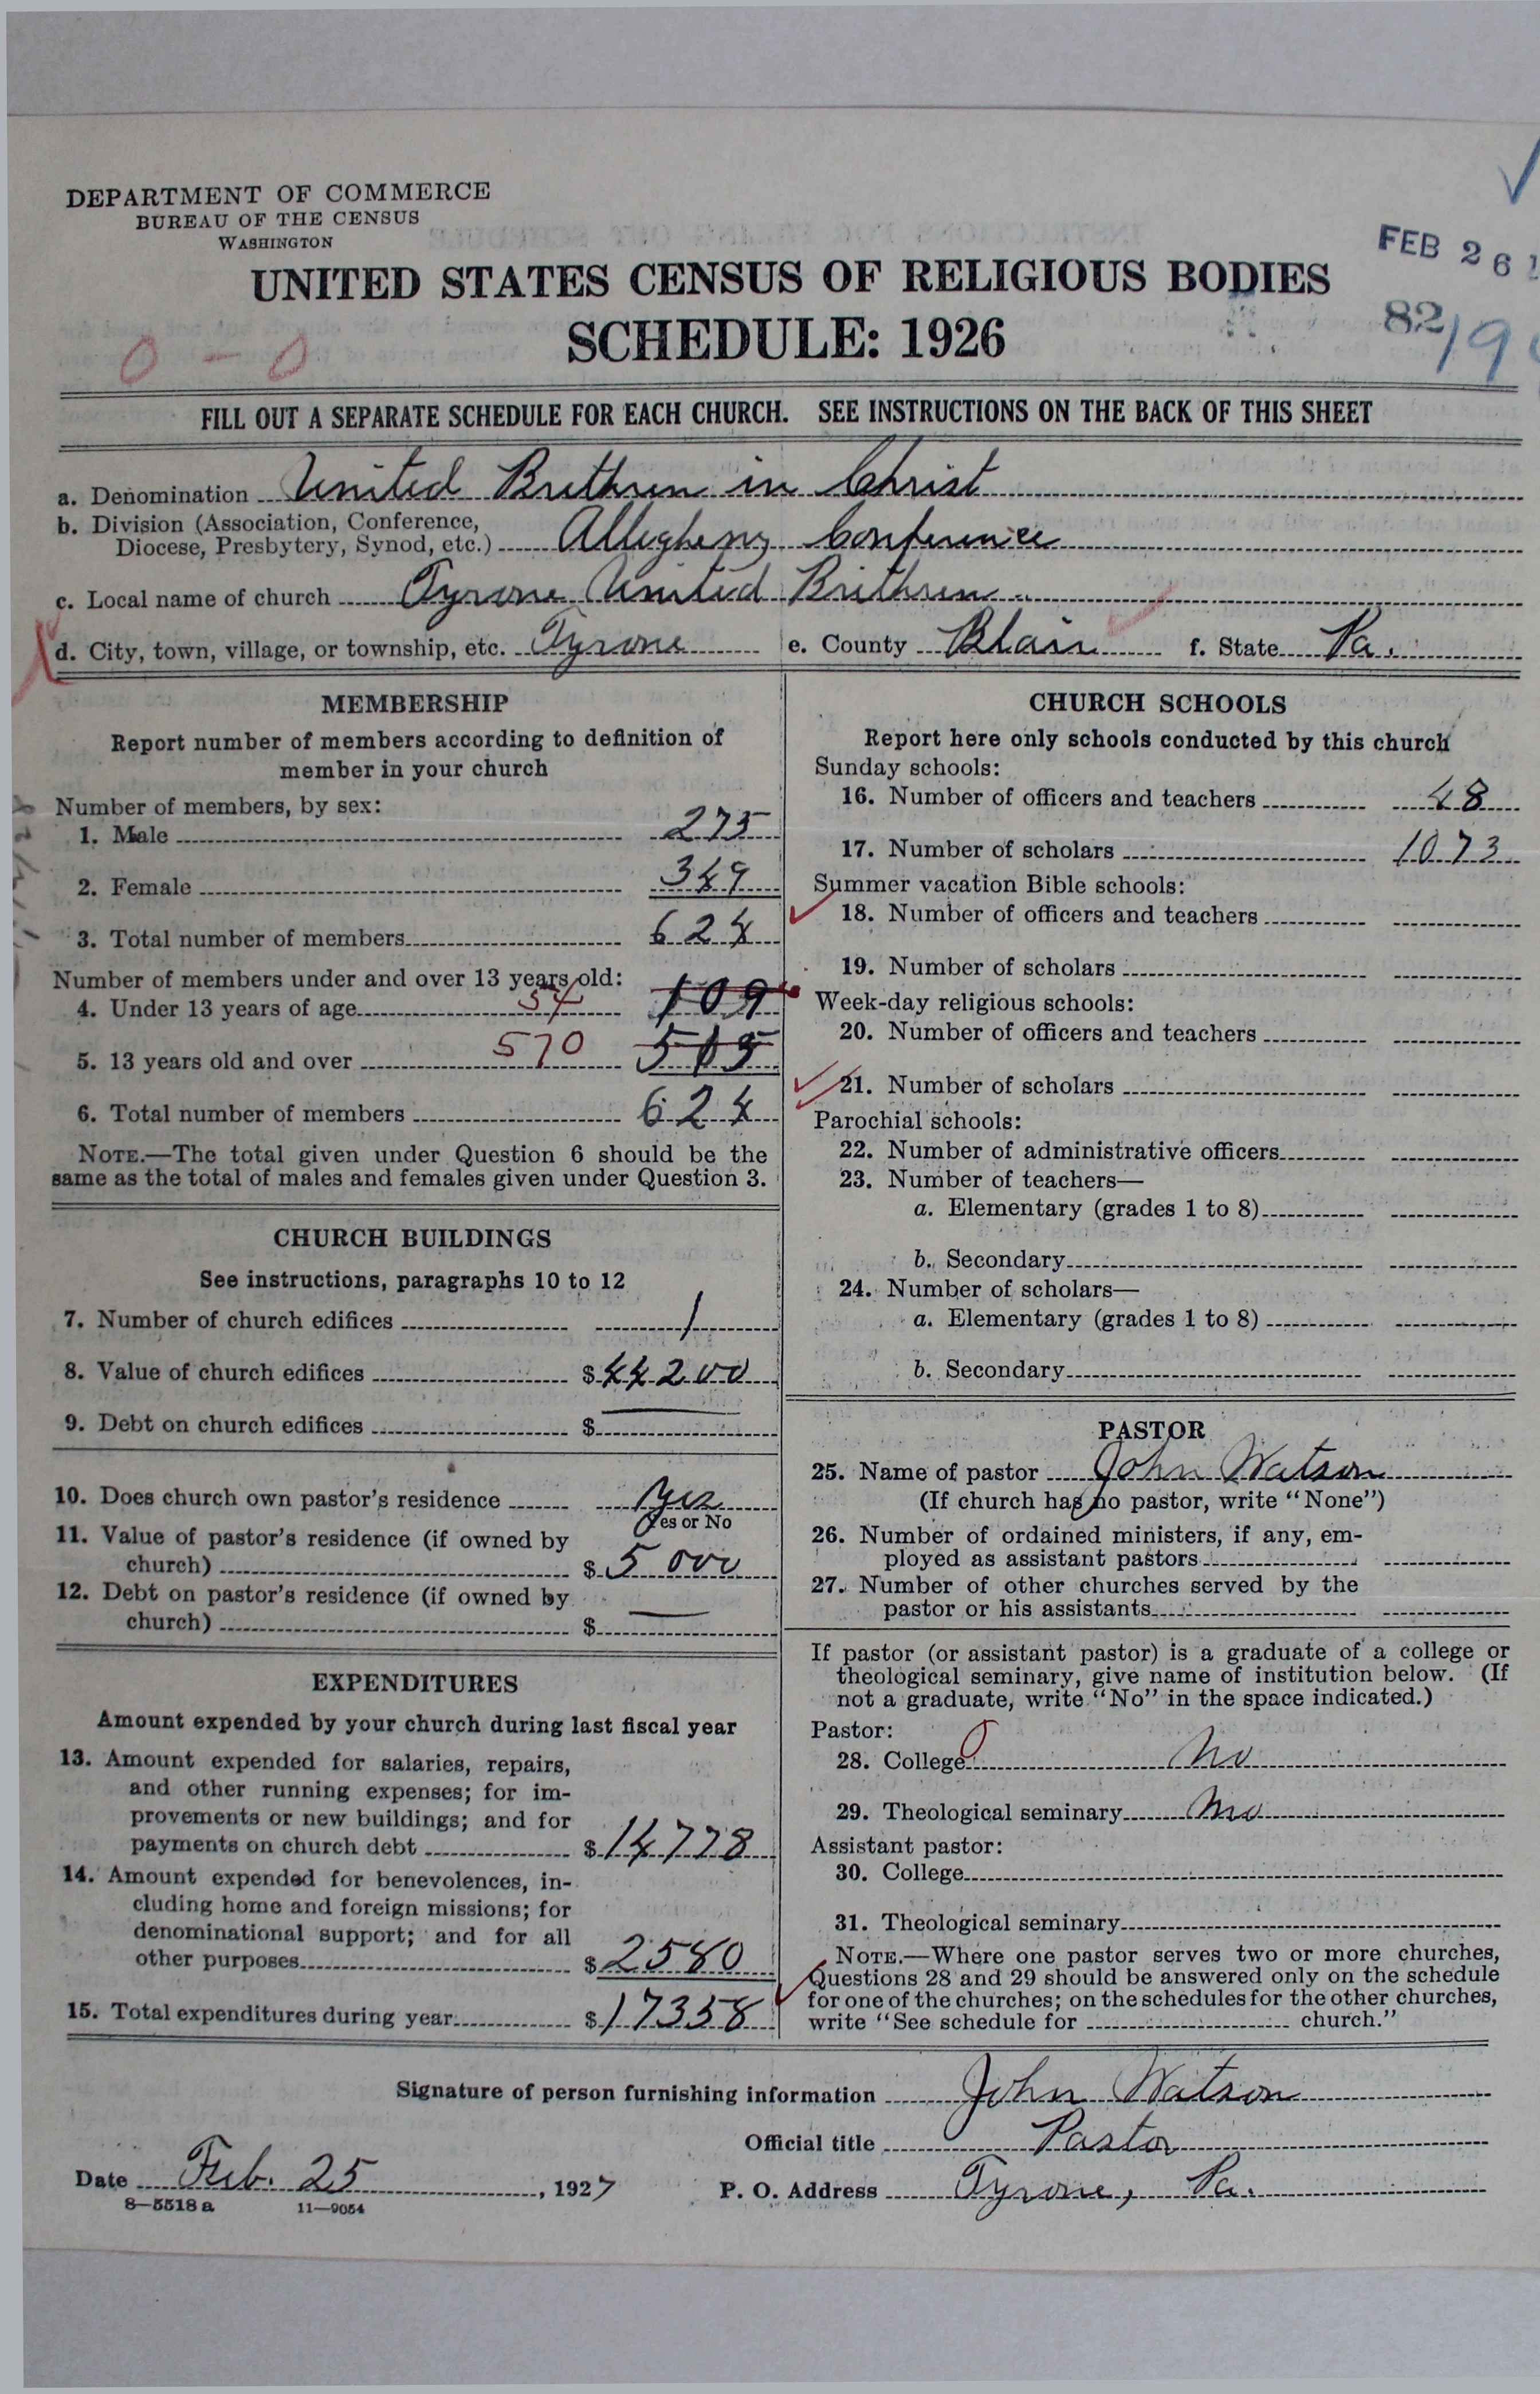 DEPARTMENT OF COMMERCE
BUREAU OF THE CENSUS
WASHINGTON
FEB 26 1
UNITED STATES CENSUS OF RELIGIOUS BODIES
SCHEDULE: 1926
82/19
0 - 0
FILL OUT A SEPARATE SCHEDULE FOR EACH CHURCH. SEE INSTRUCTIONS ON THE BACK OF THIS SHEET
a. Denomination United Brethren in Christ
b. Division (Association, Conference,
Diocese, Presbytery, Synod, etc.) Allegheny Conference
c. Local name of church Tyrone United Brethren
d. City, town, village, or township, etc. Tyrone e. County Blair f. State Pa.
MEMBERSHIP
Report number of members according to definition of
member in your church
Number of members, by sex:
1. Male 275
2. Female 349
3. Total number of members 624
Number of members under and over 13 years old:
4. Under 13 years of age 54 109
5. 13 years old and over 570 515
6. Total number of members 624
NOTE.—The total given under Question 6 should be the
same as the total of males and females given under Question 3.
CHURCH BUILDINGS
See instructions, paragraphs 10 to 12
7. Number of church edifices 1
8. Value of church edifices $44200
9. Debt on church edifices $ —
10. Does church own pastor's residence Yes
Yes or No
11. Value of pastor's residence (if owned by
church) $5000
12. Debt on pastor's residence (if owned by
church) $ —
EXPENDITURES
Amount expended by your church during last fiscal year
13. Amount expended for salaries, repairs,
and other running expenses; for im-
provements or new buildings; and for
payments on church debt $14778
14. Amount expended for benevolences, in-
cluding home and foreign missions; for
denominational support; and for all
other purposes $2580
15. Total expenditures during year $17358
CHURCH SCHOOLS
Report here only schools conducted by this church
Sunday schools:
16. Number of officers and teachers 48
17. Number of scholars 1073
Summer vacation Bible schools:
18. Number of officers and teachers
19. Number of scholars
Week-day religious schools:
20. Number of officers and teachers
21. Number of scholars
Parochial schools:
22. Number of administrative officers
23. Number of teachers—
a. Elementary (grades 1 to 8)
b. Secondary
24. Number of scholars—
a. Elementary (grades 1 to 8)
b. Secondary
PASTOR
25. Name of pastor John Watson
(If church has no pastor, write "None")
26. Number of ordained ministers, if any, em-
ployed as assistant pastors
27. Number of other churches served by the
pastor or his assistants
If pastor (or assistant pastor) is a graduate of a college or
theological seminary, give name of institution below. (If
not a graduate, write "No" in the space indicated.)
Pastor:
28. College 0 No
29. Theological seminary No
Assistant pastor:
30. College
31. Theological seminary
NOTE.—Where one pastor serves two or more churches,
Questions 28 and 29 should be answered only on the schedule
for one of the churches; on the schedules for the other churches,
write "See schedule for church."
Signature of person furnishing information John Watson
Official title Pastor
Date Feb. 25, 1927 P. O. Address Tyrone, Pa.
8—5518 a 11—9054